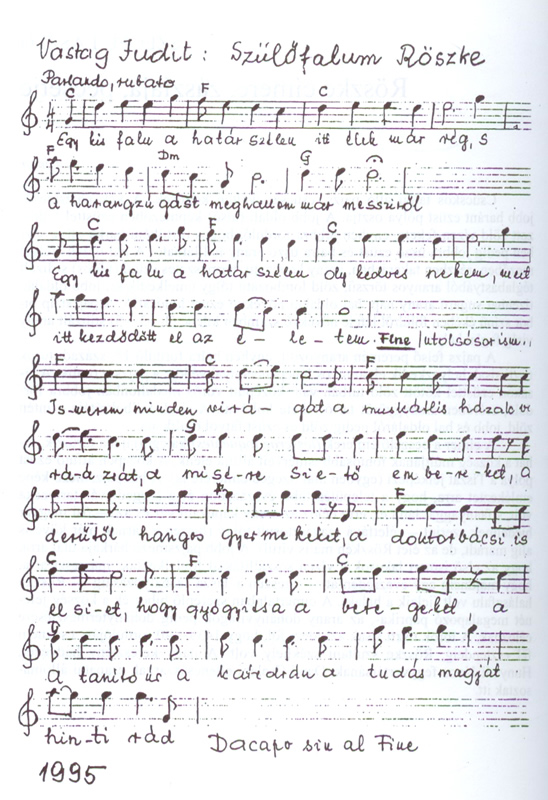 Vastag Judit: Szülőfalum Röszke
Parlando, rubato
C F C
Egy kis falu a határ szélen itt élek már rég, s
F Dm G
a harangzúgást meghallom már messziről
C F C
Egy kis falu a határ szélen oly kedves nekem, mert
itt kezdődött el az é - le - tem. Fine /utolsó sor ism.
F C F
Is-merem minden virá - gát a muskátlis házak
G
rá-á zsát, a misé-re sie-tő em be-re-ket, a
derűtől hangos gyermekeket, a doktorbácsi is
C F C
el si-et, hogy gyógyítsa a bete-geket a
G
a tanító úr a a tudás magját
hin-ti rád Dacapo sin al Fine
1995